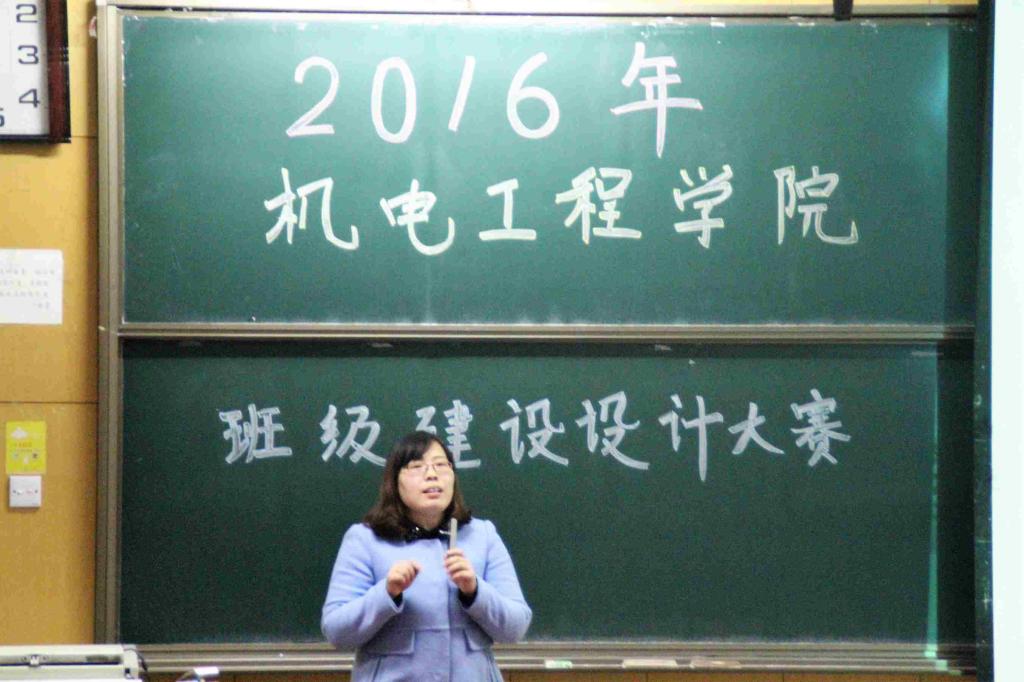 2
3
4
2016年
机电工程学院
班级建设设计大赛